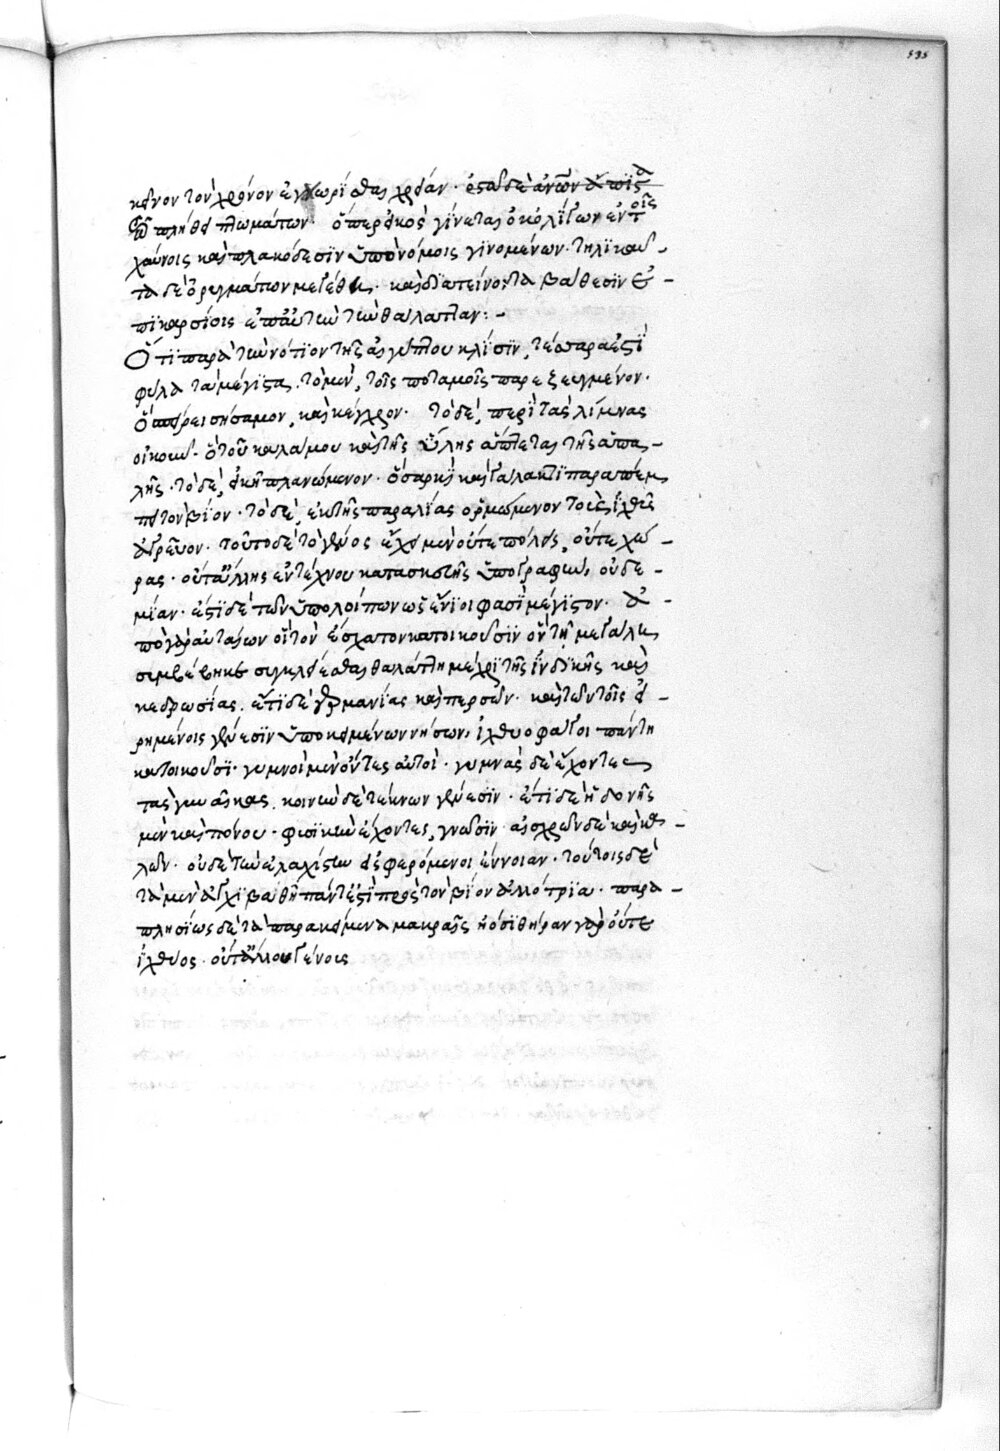 535
κεῖνον τὸν χρόνον ἐγχωρίοις χρείαν. ὁρᾶσθαι δὲ
τῶ πλήθει πτωμάτων ὅπερ εἰκὸς γίνεται ὀκολίγων ἐν τοῖς
χαύνοις καὶ πλακώδεσιν ὑπονόμοις γινομένων. τηλικαῦ-
τα δὲ ὀρεγμάτων μεγέθει. καὶ διατείνοντα βάθεσιν ἐ-
πικαρσίοις ἐπ' αὐτὴν τὴν θάλατταν:-
Ὅτι παρὰ τὴν νότιον τῆς αἰγύπτου κλίσιν, τέσσαρα ἐστὶ
φύλα τὰ μέγιστα. τὸ μὲν, τοῖς ποταμοῖς παρεζευγμένον.
ὃ σπείρει σήσαμον, καὶ κέγχρον. τὸ δὲ, περὶ τὰς λίμνας
οἰκοῦν. ὃ τοῦ καλάμου καὶ τῆς ὕλης ἅπτεται τῆς ἁπα-
λῆς. τὸ δὲ, εἰκῆ πλανώμενον. ὃ σαρκὶ καὶ γάλακτι παραπέμ
πει τὸν βίον. τὸ δὲ, ἐκ τῆς παραλίας ὁρμώμενον τοὺς ἰχθῦς
ἀγρεῦον. τοῦτο δὲ τὸ γένος ἔχει μὲν οὔτε πόλεις, οὔτε χώ-
ρας. οὔτ' ἄλλης ἐντέχνου κατασκευῆς ὑπογραφὴν, οὐδε-
μίαν. ἐστὶ δὲ τῶν ὑπολοίπων ὡς ἔνιοι φασὶ μέγιστον. ἀ-
πὸ γὰρ αὐταίων οἳ τὸν ἔσχατον κατοικοῦσιν ὃν τῇ μεγάλῃ
συμβέβηκε συγκλείεσθαι θαλάττη μέχρι τῆς ἰνδικῆς καὶ
κεδρωσίας. ἔτι δὲ γερμανίας καὶ περσῶν. καὶ τῶν τοῖς εἰ-
ρημένοις γένεσιν ὑποκειμένων νήσων, ἰχθυοφάγοι πάντη
κατοικοῦσι. γυμνοὶ μὲν ὄντες αὐτοὶ. γυμνὰς δὲ ἔχοντες
τὰς γυναῖκας. κοινὴν δὲ τέκνων γένεσιν. ἔτι δὲ ἡδονῆς
μὲν καὶ πόνου. φυσικὴν ἔχοντες γνῶσιν. αἰσχρῶν δὲ καὶ κα-
λῶν. οὐδὲ τὴν ἐλαχίστην εἰσφερόμενοι ἔννοιαν. τούτοις δὲ
τὰ μὲν ἀγχιβαθῆ πάντ' ἐστὶ πρὸς τὸν βίον ἀλλότρια. παρα-
πλησίως δὲ τὰ παρακείμενα μακραῖς ἠϊόσι θήραν γὰρ οὔτε
ἰχθύος. οὔτ' ἄλλου γένους